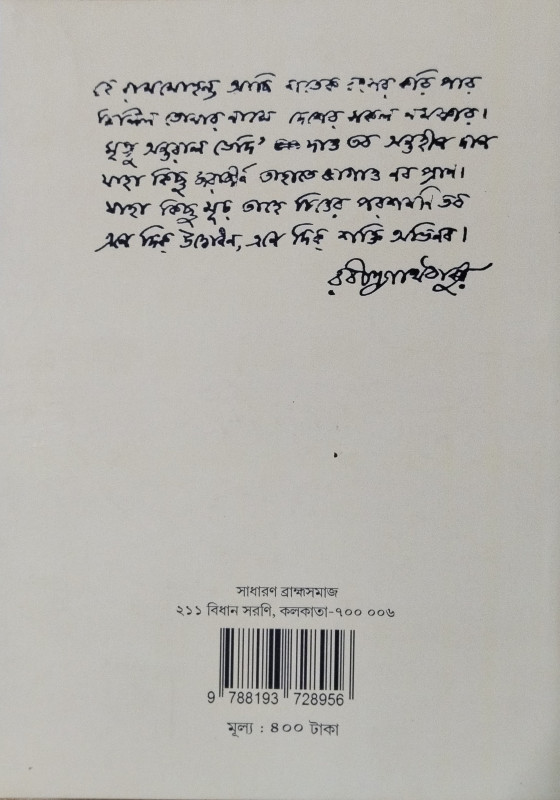 হে রামমোহন, আজি শতেক বৎসর করি পার
মিলিল তোমার নামে দেশের সকল নমস্কার।
মৃত্যু অন্তরাল ভেদি' দাও তব অন্তহীন দান
যাহা কিছু জরাজীর্ণ তাহাতে জাগাও নব প্রাণ।
যাহা কিছু মূঢ় তাহে চিত্তের পরশমণি তব
এনে দিক্ উদ্বোধন, এনে দিক্ শক্তি অভিনব।
রবীন্দ্রনাথ ঠাকুর
সাধারণ ব্রাহ্মসমাজ
২১১ বিধান সরণি, কলকাতা-৭০০ ০০৬
9 788193 728956
মূল্য : ৪০০ টাকা